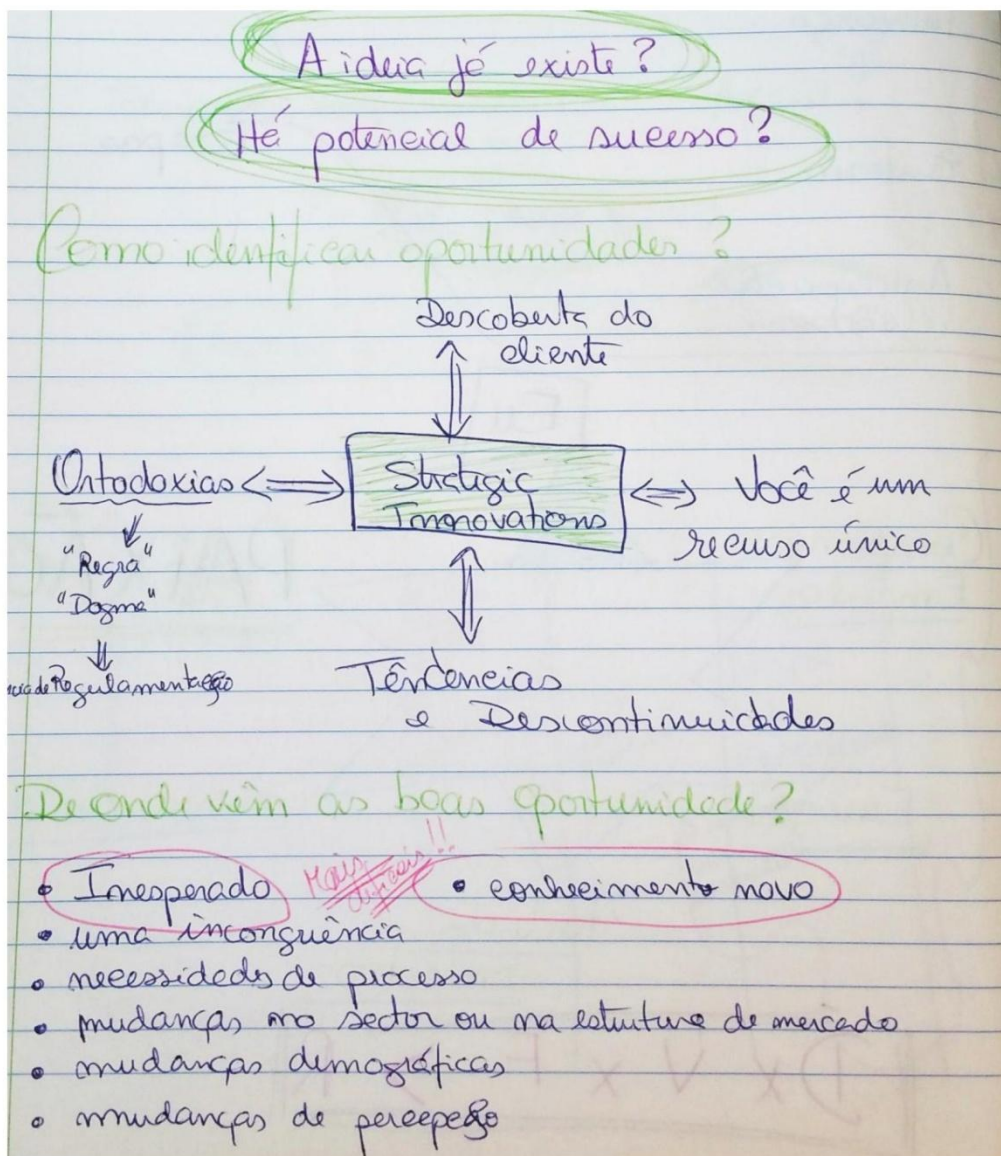 A ideia já existe?
Há potencial de sucesso?
Como identificar oportunidades?
Descoberta do
cliente
Ortodoxias
Strategic
Innovations
Você é um
recurso único
"Regra"
"Dogma"
Regulamentação
Têndencias
e Descontinuidades
De onde vêm as boas oportunidade?
• Inesperado
Mais difíceis!!
• conhecimento novo
• uma incongruência
• necessidades de processo
• mudanças no sector ou na estrutura de mercado
• mudanças demográficas
• mudanças de percepção
D x V x F > R